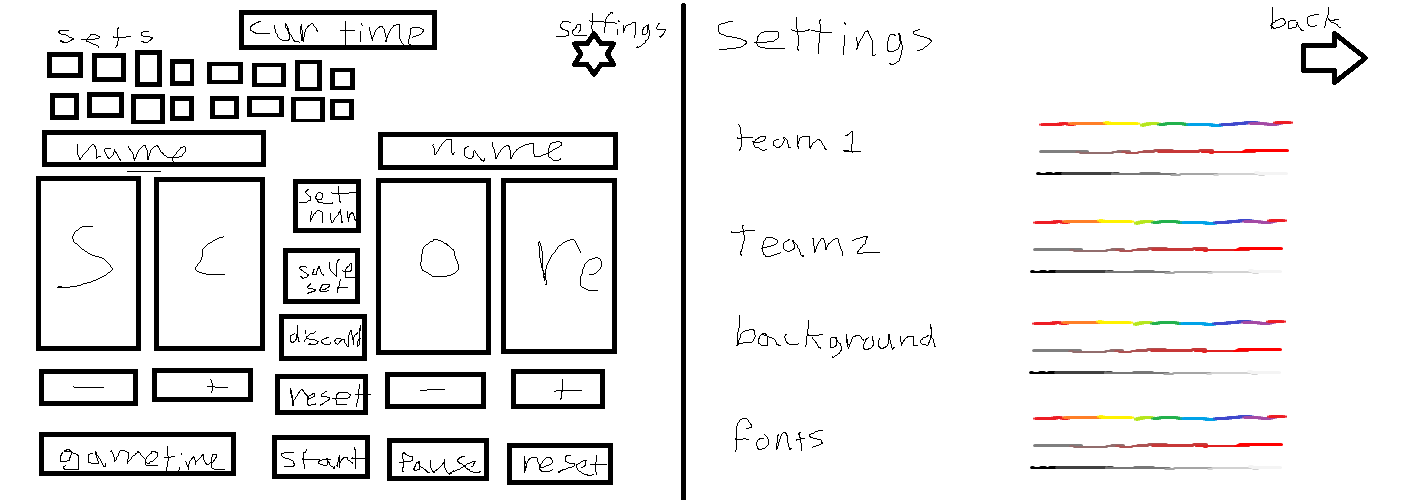 sets
cur time
settings
name
name
S
c
o
re
set
num
save
set
discard
reset
-
+
-
+
gametime
start
pause
reset
Settings
back
team 1
Team 2
background
fonts